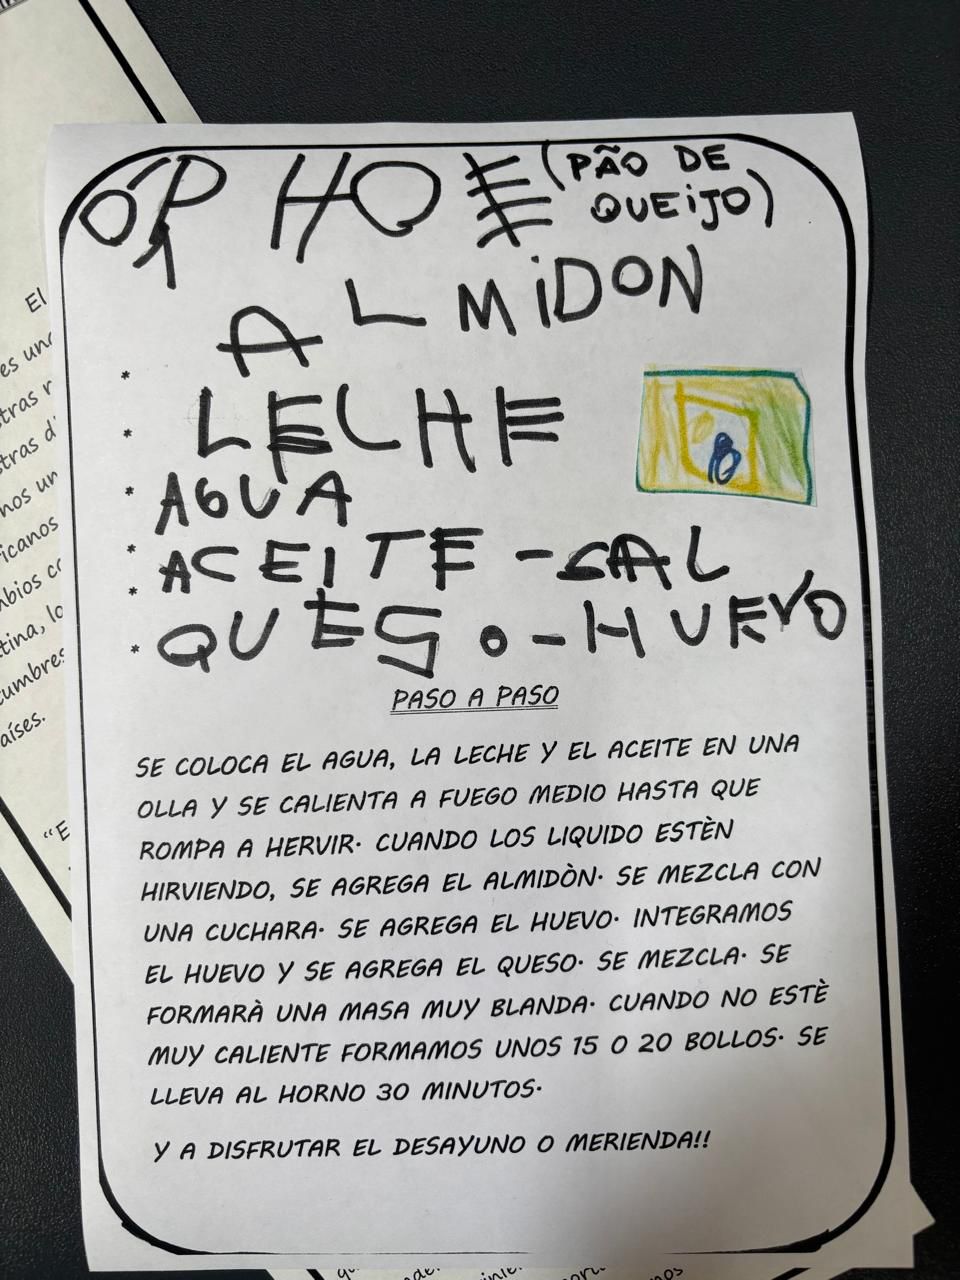 ÓP HOE (PÃO DE
QUEiJO)
ALMiDON
* LECHE
* AGUA
* ACEITE - SAL
* QUESO - HUEVO
PASO A PASO
SE COLOCA EL AGUA, LA LECHE Y EL ACEITE EN UNA
OLLA Y SE CALIENTA A FUEGO MEDIO HASTA QUE
ROMPA A HERVIR. CUANDO LOS LIQUIDO ESTÈN
HIRVIENDO, SE AGREGA EL ALMIDÒN. SE MEZCLA CON
UNA CUCHARA. SE AGREGA EL HUEVO. INTEGRAMOS
EL HUEVO Y SE AGREGA EL QUESO. SE MEZCLA. SE
FORMARÀ UNA MASA MUY BLANDA. CUANDO NO ESTÈ
MUY CALIENTE FORMAMOS UNOS 15 O 20 BOLLOS. SE
LLEVA AL HORNO 30 MINUTOS.
Y A DISFRUTAR EL DESAYUNO O MERIENDA!!
El
es una
tras r
tras d
nos un
icanos
mbios c
tina, lo
cumbres
aíses.
"E